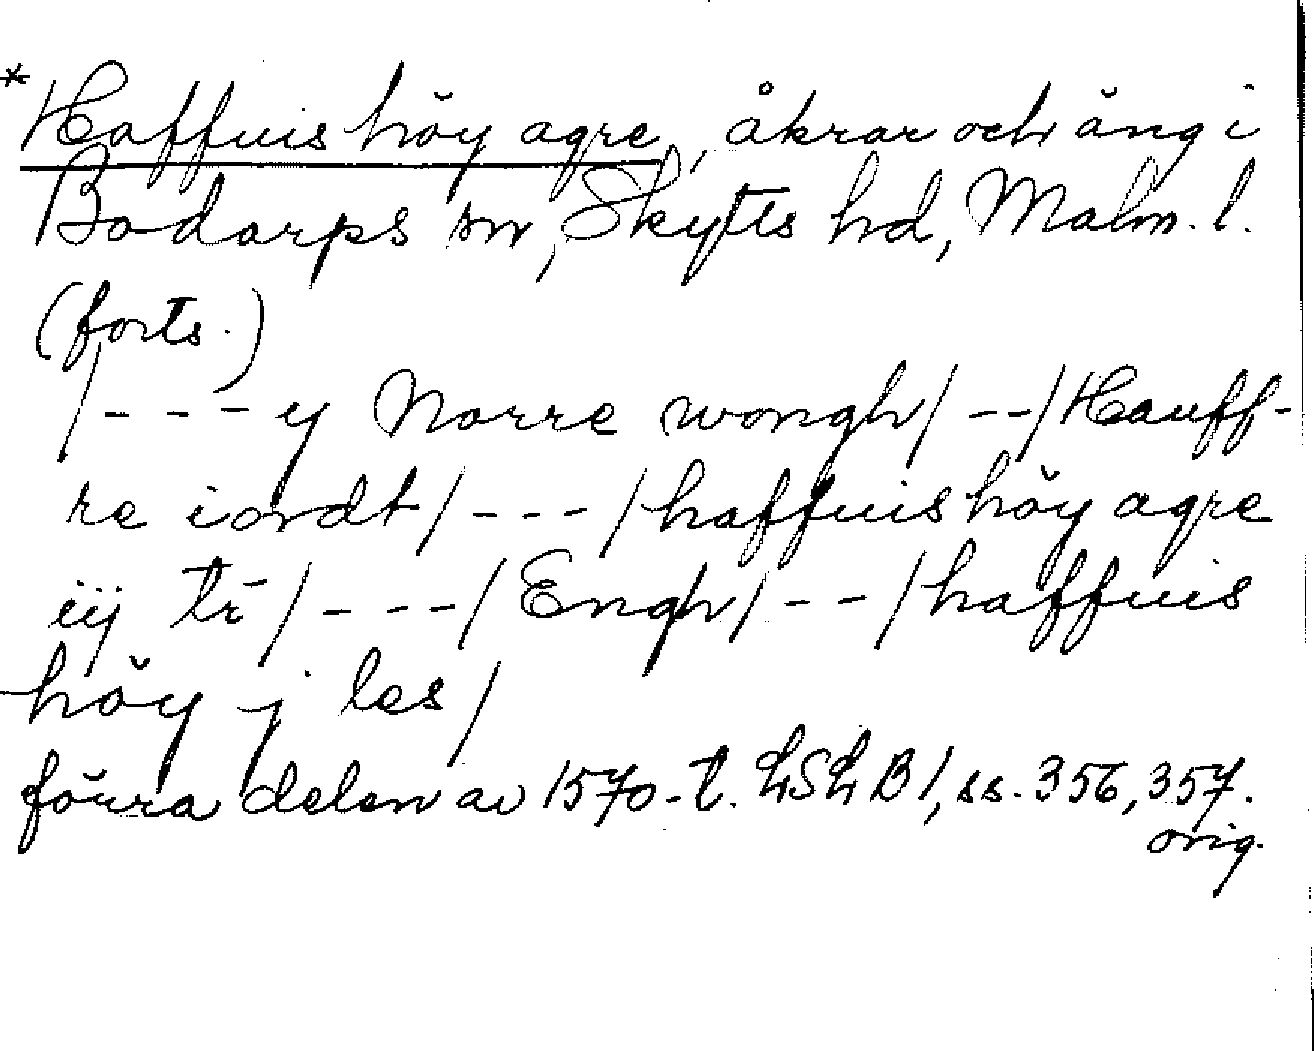 *Haffuis höy agre, åkrar och äng i
Bodarps sn, Skytts hd, Malm. l.
(forts.)
/---y Norre wongh/--/Hauff-
re iordt/---/haffuis höy agre
iij tr̄/---/Engh/--/haffuis
höy j les/
förra delen av 1570-t. LSL B1, ss. 356, 357.
orig.